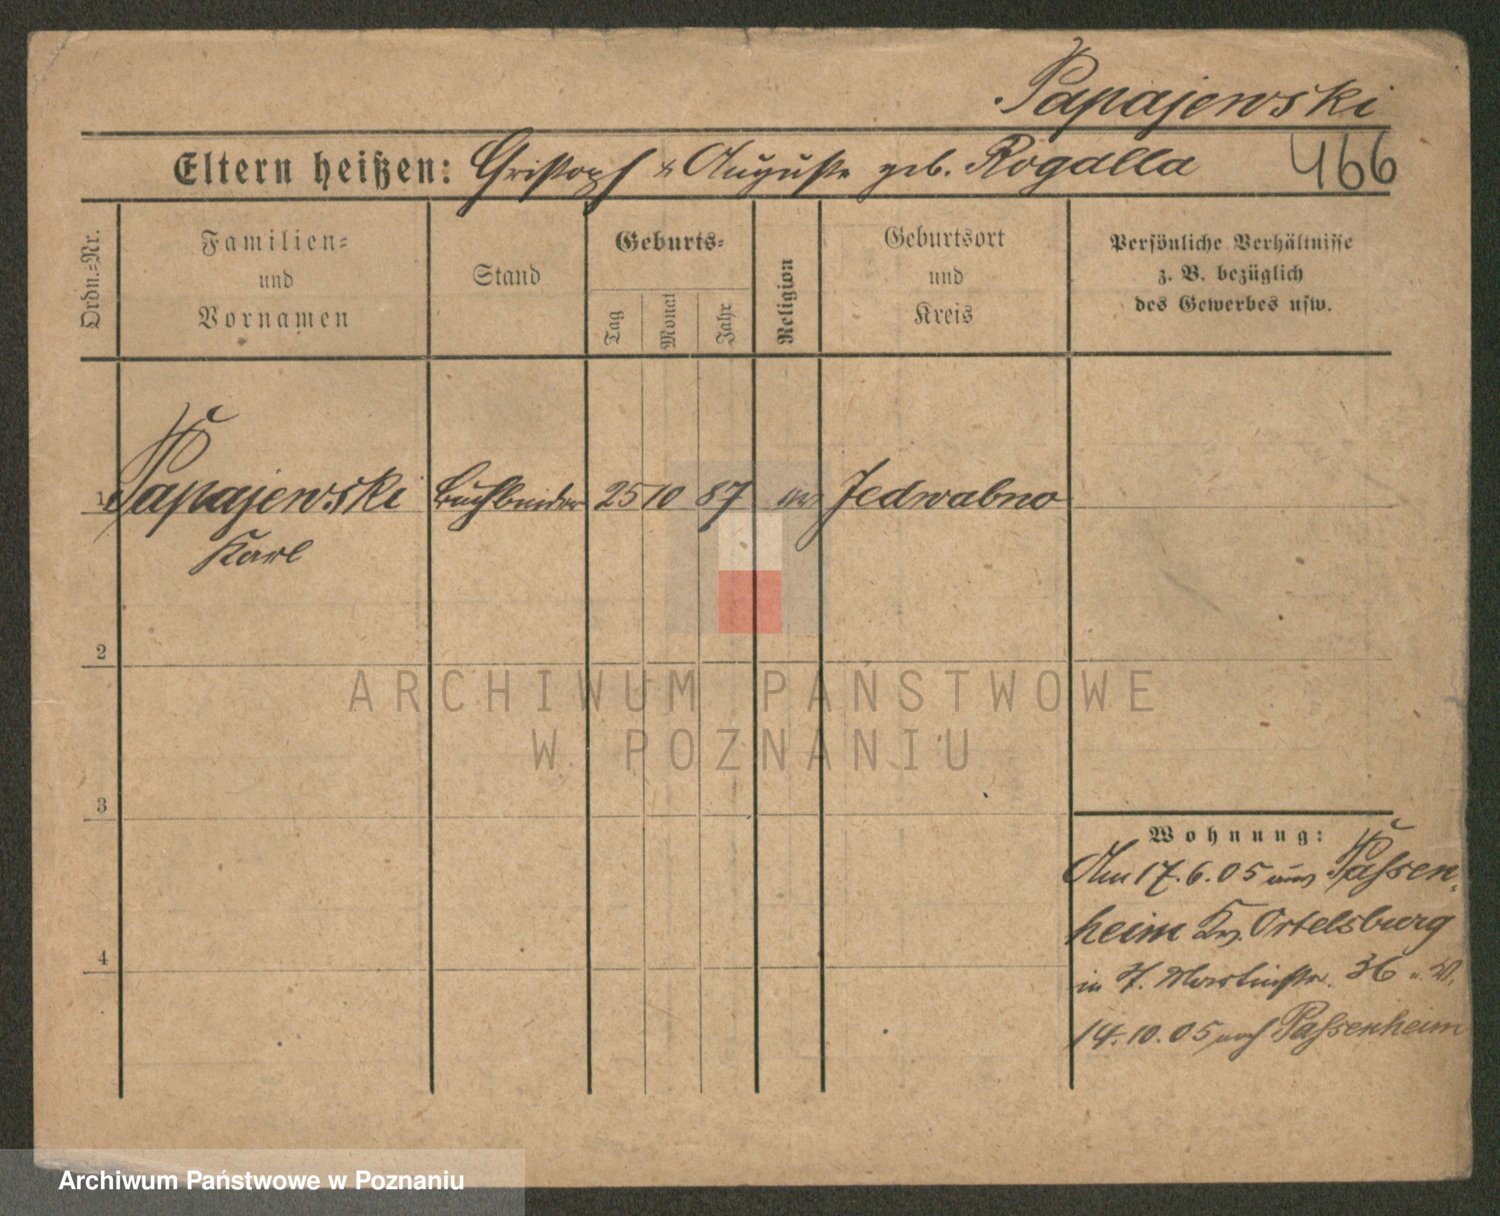 Papajewski
466
Eltern heißen: Christoph & Auguste geb. Rogalla
Ordn.=Nr.
Familien=
und
Vornamen
Stand
Geburts=
Tag
Monat
Jahr
Religion
Geburtsort
und
Kreis
Persönliche Verhältnisse
z. B. bezüglich
des Gewerbes usw.
1 Papajewski Buchbinder 25 10 87 ev Jedwabno
Karl
2
3
4
Wohnung:
Am 17.6.05 aus Passen-
heim Kr. Ortelsburg
in Martinstr. 36
14.10.05 nach Passenheim
ARCHIWUM PAŃSTWOWE
W POZNANIU
Archiwum Państwowe w Poznaniu